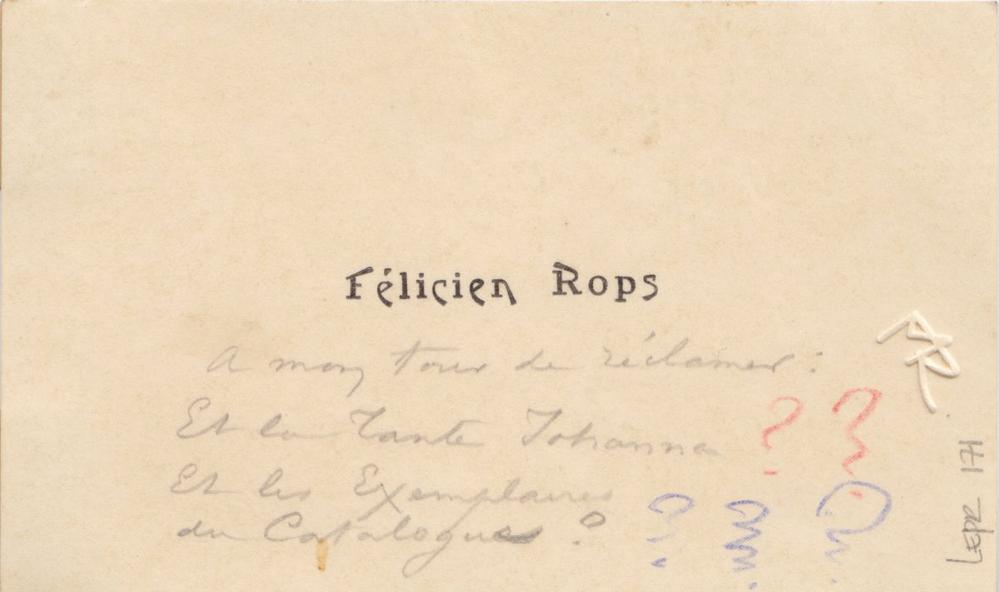 Félicien Rops
A mon tour de réclamer :
Et la Tante Johanna ? ?
Et les Exemplaires
du Catalogue ? ? ? ?
FR
LEpR 171